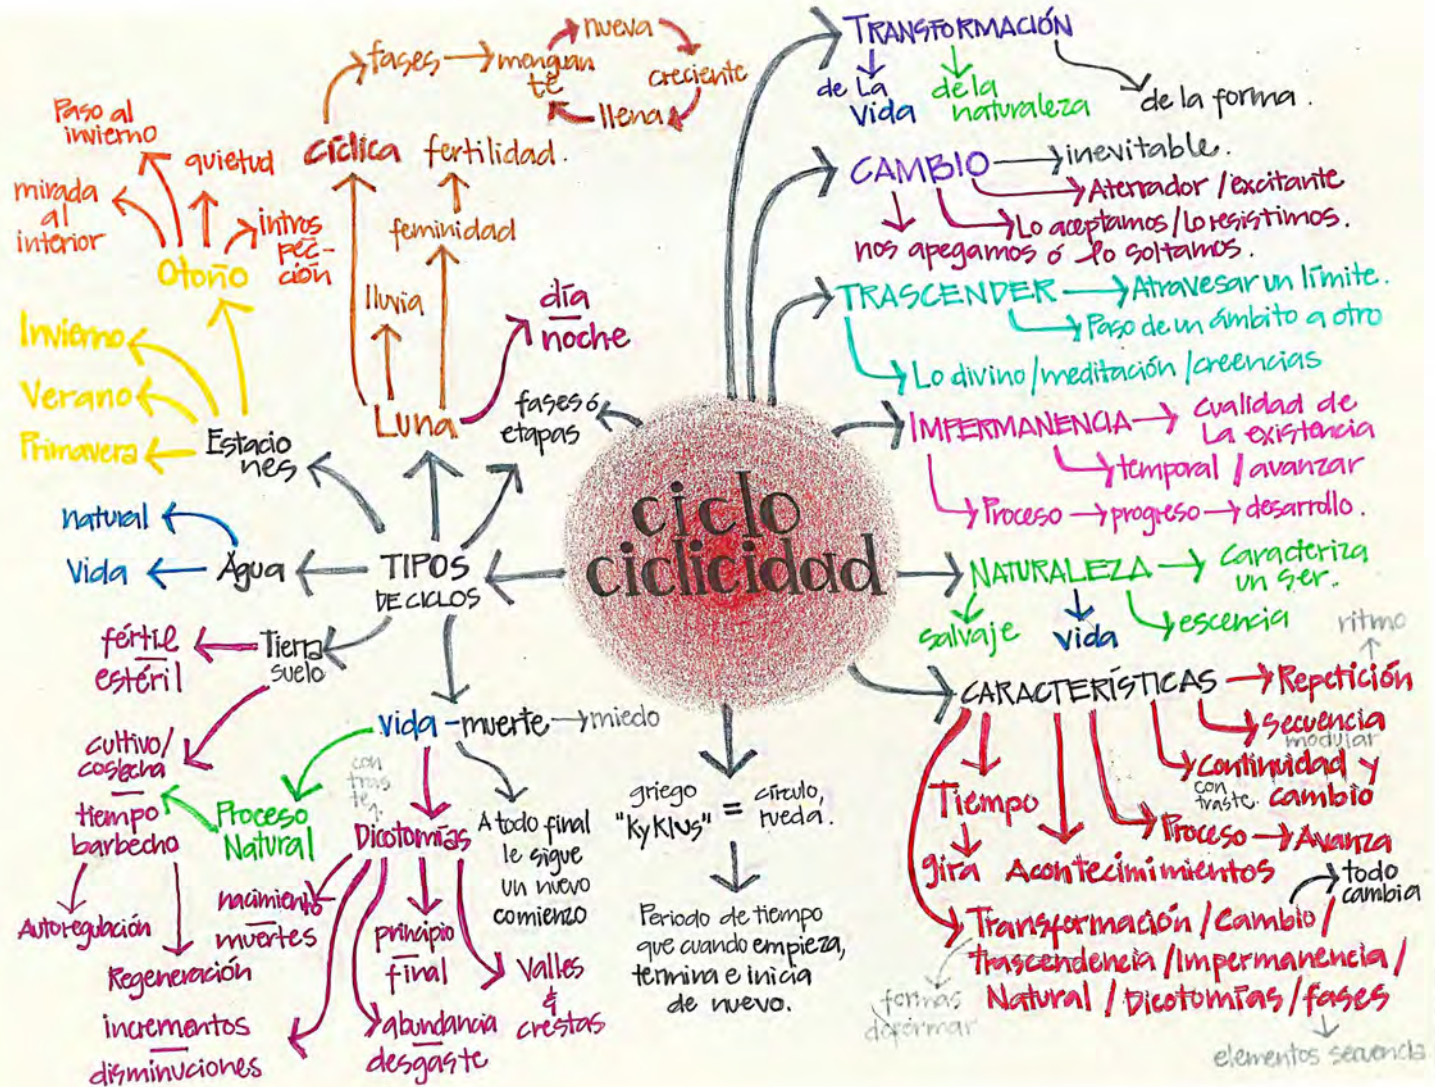 ciclo
ciclicidad
TRANSFORMACIÓN
de La
Vida
de la
naturaleza
de la forma.
CAMBIO
inevitable.
Aterrador/excitante
Lo aceptamos/Lo resistimos.
nos apegamos ó lo soltamos.
TRASCENDER
Atravesar un límite.
Paso de un ámbito a otro
Lo divino/meditación/creencias
IMPERMANENCIA
Cualidad de
La existencia
temporal / avanzar
Proceso
progreso
desarrollo.
NATURALEZA
Caracteriza
un ser.
salvaje
vida
escencia
CARACTERÍSTICAS
ritmo
Repetición
secuencia
modular
continuidad y
cambio
con
traste.
Proceso
Avanza
Acontecimimientos
Tiempo
gira
todo
cambia
Transformación / Cambio /
trascendencia / Impermanencia /
Natural / Dicotomías / fases
formas
deformar
elementos secuencia
griego
"KyKlus"
=
círculo,
rueda.
Periodo de tiempo
que cuando empieza,
termina e inicia
de nuevo.
TIPOS
DE CICLOS
fases ó
etapas
Luna
Cíclica
fases
menguan
te
nueva
creciente
llena
lluvia
feminidad
fertilidad.
día
noche
Estacio
nes
Otoño
Paso al
invierno
quietud
mirada
al
interior
intros
pec-
ción
Invierno
Verano
Primavera
Agua
natural
Vida
Tierra
suelo
fértil
estéril
cultivo/
cosecha
tiempo
barbecho
Autoregulación
Regeneración
vida - muerte
miedo
Proceso
Natural
con
tras
te
Dicotomías
A todo final
le sigue
un nuevo
comienzo
nacimiento
muertes
principio
final
Valles
&
crestas
incrementos
disminuciones
abundancia
desgaste